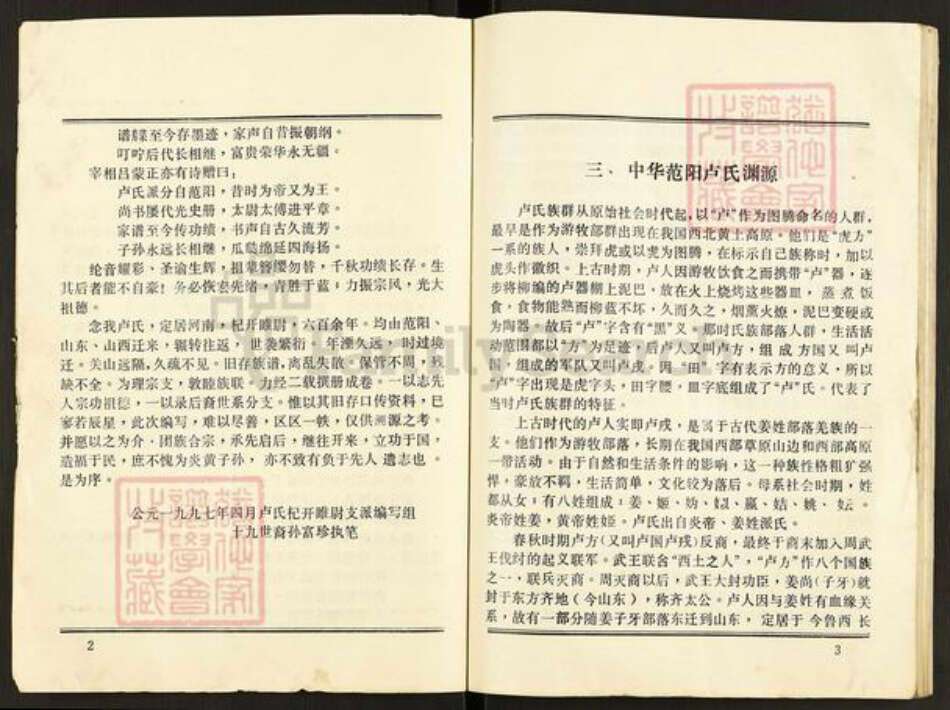 谱牒至今存墨迹，家声自昔振朝纲。
叮咛后代长相继，富贵荣华永无疆。
宰相吕蒙正亦有诗赠曰：
卢氏派分自范阳，昔时为帝又为王。
尚书屡代光史册，太尉太傅进平章。
家谱至今传功绩，书声自古久流芳。
子孙永远长相继，瓜瓞绵延四海扬。
纶音耀彩、圣谕生辉，祖辈簪缨勿替，千秋功绩长存。生
其后者能不自豪！务必恢宏先绪，青胜于蓝；力振宗风，光大
祖德。
念我卢氏，定居河南，杞开睢尉，六百余年。均由范阳、
山东、山西迁来，辗转往返，世袭繁衍，年湮久远，时过境
迁。关山远隔，久疏不见。旧存族谱，离乱失散，保管不周，残
缺不全。为理宗支，敦睦族联，力经二载撰册成卷。一以志先
人宗功祖德，一以录后裔世系分支。惟以其旧存口传资料，已
寥若辰星，此次编写，难以尽善，区区一帙，仅供溯源之考。
并愿以之为介，团族合宗，承先启后，继往开来，立功于国，
造福于民，庶不愧为炎黄子孙，亦不致有负于先人遗志也。
是为序。
公元一九九七年四月卢氏杞开睢尉支派编写组
十九世裔孙富珍执笔
2
三、中华范阳卢氏渊源
卢氏族群从原始社会时代起，以“卢”作为图腾命名的人群，
最早是作为游牧部群出现在我国西北黄土高原。他们是“虎方”
一系的族人，崇拜虎或以虎为图腾，在标示自己族称时，加以
虎头作徽织。上古时期，卢人因游牧饮食之而携带“卢”器，逐
步将柳编的卢器糊上泥巴，放在火上烧烤这些器皿，蒸煮饭
食，食物能熟而柳蓝不坏，久而久之，烟熏火燎，泥巴变硬或
为陶器。故后“卢”字含有“黑”义，那时氏族部落人群，生活活
动范围都以“方”为足迹，后卢人又叫卢方，组成方国又叫卢
国，组成的军队又叫卢戎，因“田”字有表示方的意义，所以
“卢”字出现是虎字头，田字腰，皿字底组成了“卢”氏。代表了
当时卢氏族群的特征。
上古时代的卢人实即卢戎，是属于古代姜姓部落羌族的一
支。他们作为游牧部落，长期在我国西部草原山边和西部高原
一带活动。由于自然和生活条件的影响，这一种族性格粗犷强
悍，豪放不羁，生活简单，文化较为落后。母系社会时期，姓
都从女；有八姓组成：姜、姬、妫、姒、嬴、姞、姚、妘。
炎帝姓姜，黄帝姓姬。卢氏出自炎帝、姜姓派氏。
春秋时期卢方（又叫卢国卢戎）反商，最终于商末加入周武
王伐纣的起义联军。武王联合“西土之人”，“卢方”作八个国族
之一，联兵灭商。周灭商以后，武王大封功臣，姜尚（子牙）就
封于东方齐地（今山东），称齐太公。卢人因与姜姓有血缘关
系，故有一部分随姜子牙部落东迁到山东，定居于今鲁西长
3